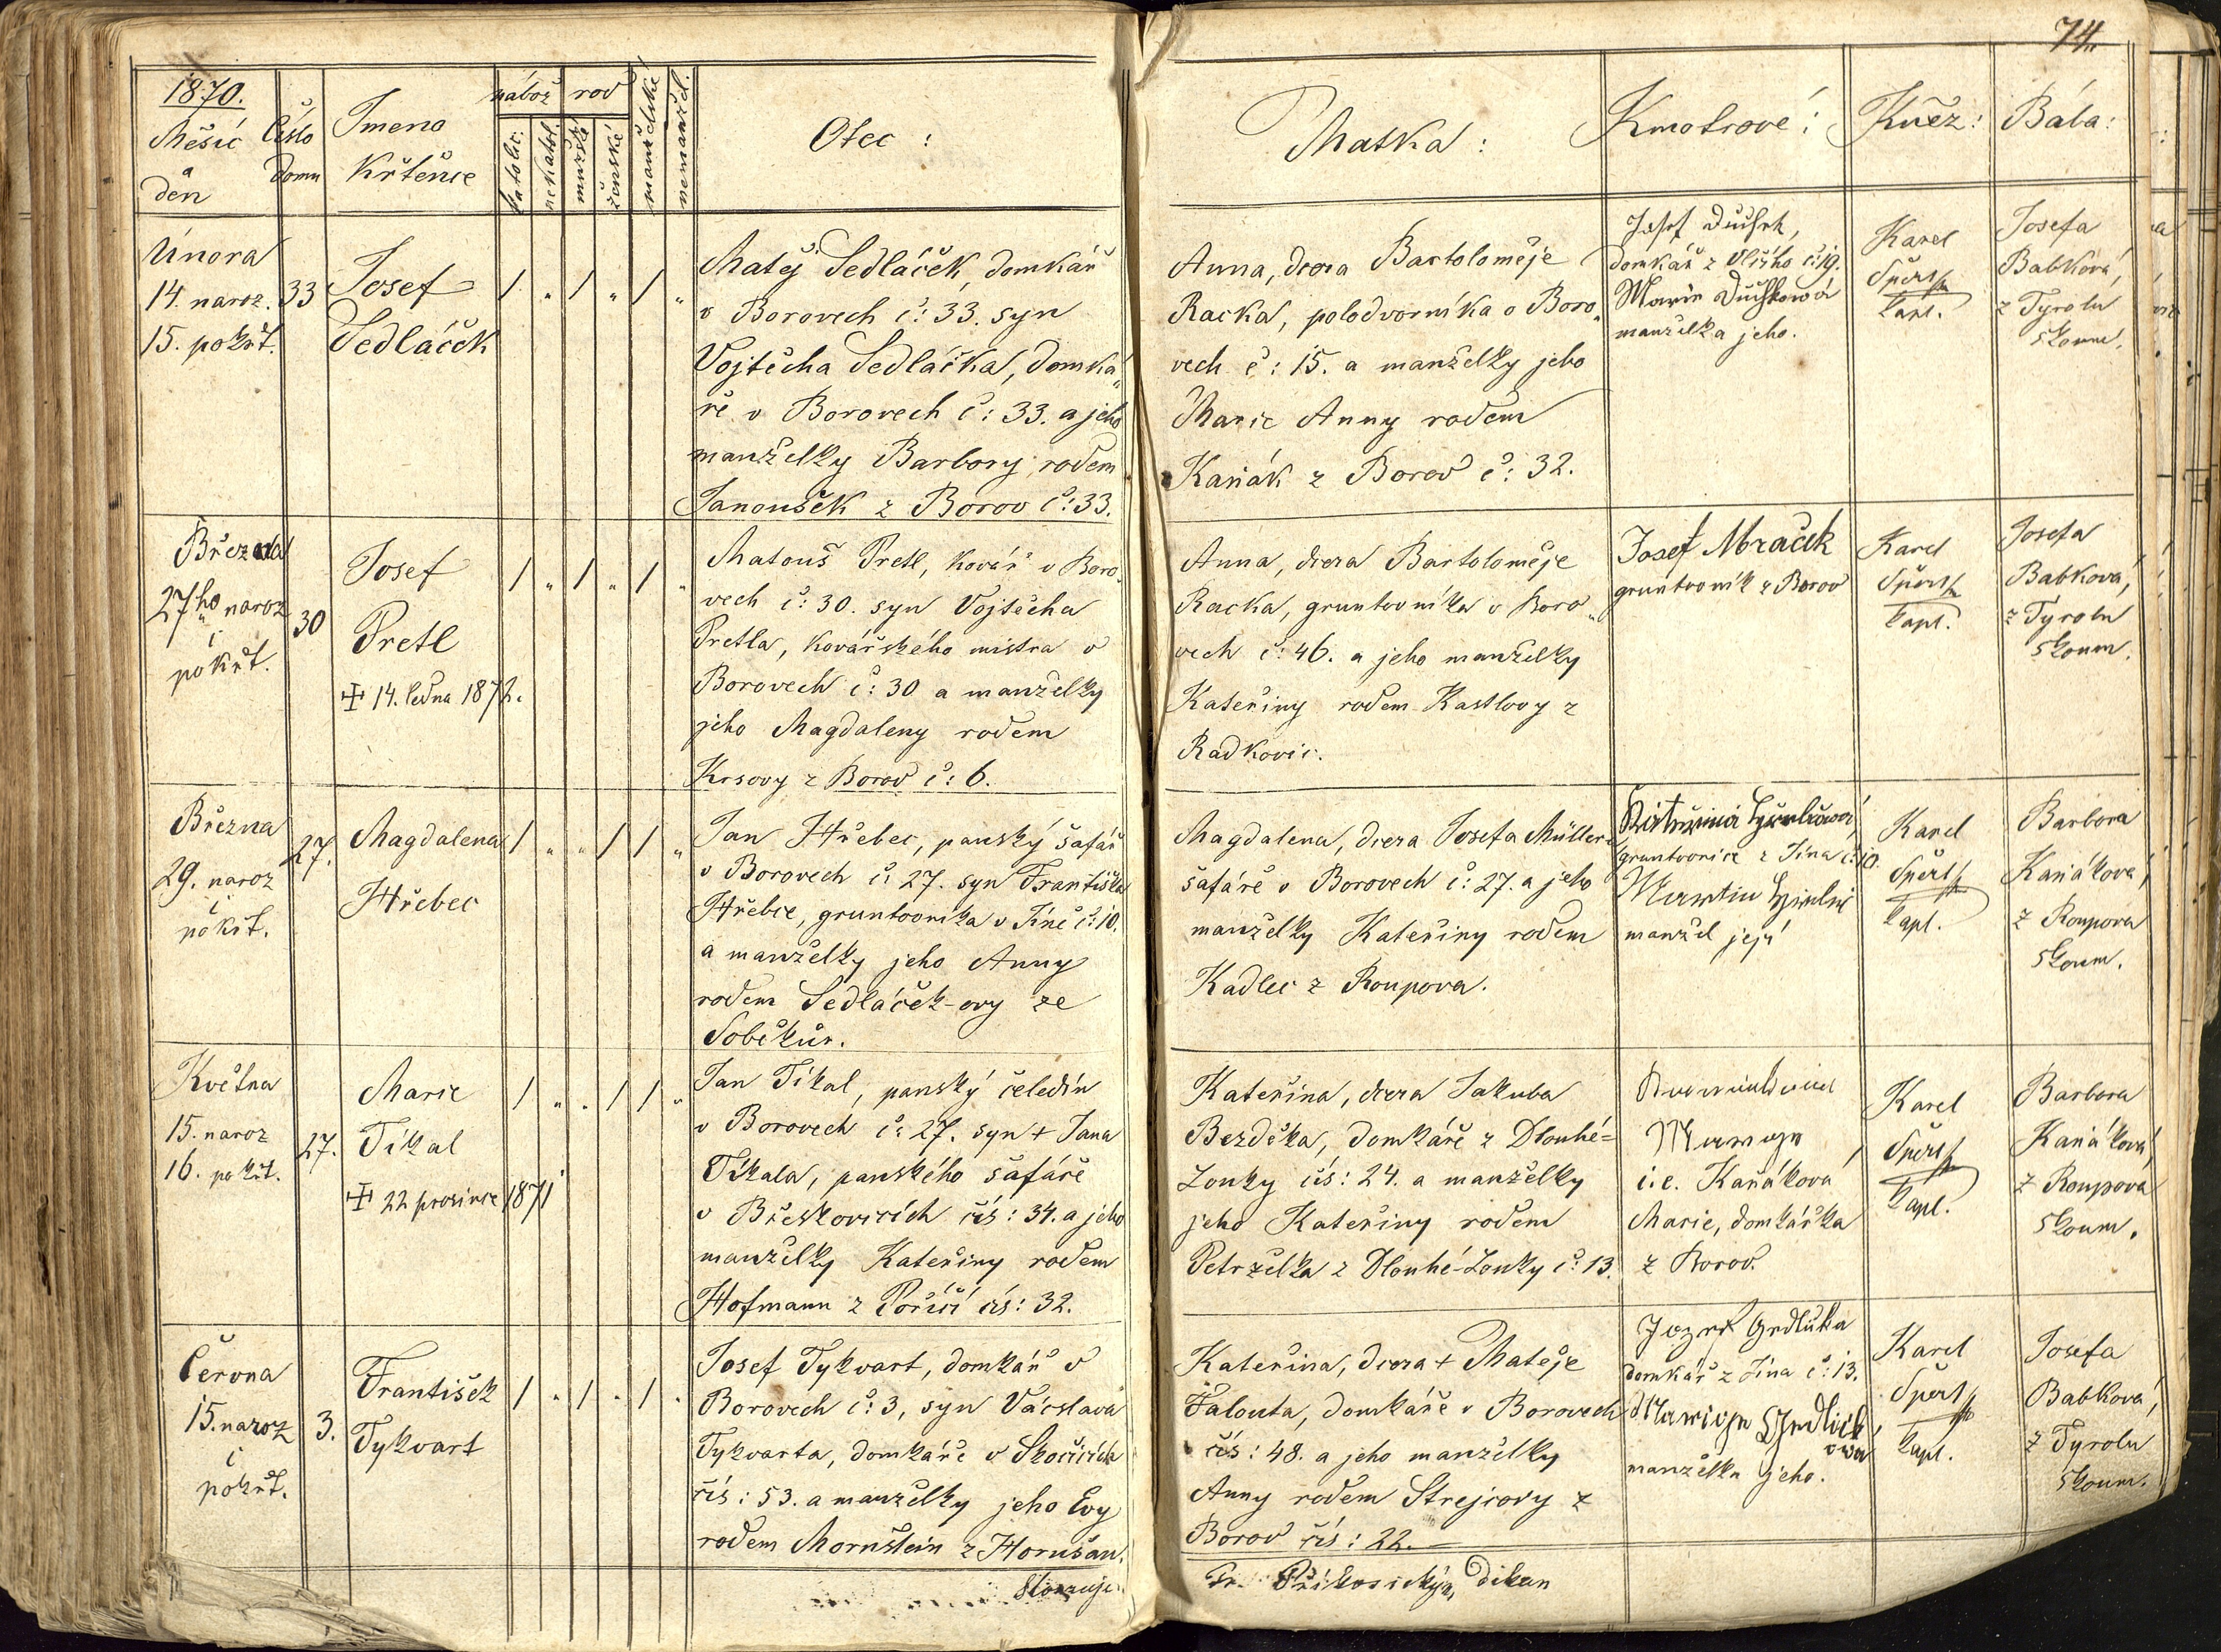 74.
1870.
Měsíc
a
den
Číslo
domu
Jmeno
křtěnce
nábož
rod
katolic.
nekatol.
mužské
ženské
manželské
nemanžel.
Otec :
Matka :
Kmotrové :
Kněz :
Bába :
Února
14. naroz.
15. pokřt.
33
Josef
Sedláček
Matěj Sedláček, domkář
v Borovech č: 33. syn
Vojtěcha Sedláčka, domká„
ře v Borovech č: 33. a jeho
manželky Barbory rodem
Janoušek z Borov č: 33.
Anna, dcera Bartoloměje
Racka, polodvorníka v Boro„
vech č: 15. a manželky jeho
Marie Anny rodem
Kaňák z Borov č: 32.
Josef
domkář z č: 19.
Marie Duchkowá
manželka jeho.
Karel
Špert
kapl.
Josefa
Babková,
z Tyrolu
zkoum.
Března
27ho naroz
i
pokřt.
30
Josef
Pretl
✠ 14. ledna 1872.
Matouš Pretl, kovář v Boro„
vech č: 30. syn Vojtěcha
Pretla, kovářského mistra v
Borovech č: 30 a manželky
jeho Magdaleny rodem
Krsovy z Borov č: 6.
Anna, dcera Bartoloměje
Racka, gruntovníka v Boro„
vech č: 46. a jeho manželky
Kateřiny rodem Kastlovy z
Radkovic.
Josef Mraček
gruntovník z Borov
Karel
Špert
kapl.
Josefa
Babková,
z Tyrolu
zkoum.
Března
29. naroz
i
pokřt.
27.
Magdalena
Hřebec
Jan Hřebec, panský šafář
v Borovech č: 27. syn Františka
Hřebce, gruntovníka v Jíně č: 10.
a manželky jeho Anny
rodem Sedláček-ovy ze
Soběkur.
Magdalena, dcera Josefa Müllera
šafáře v Borovech č: 27. a jeho
manželky Kateřiny rodem
Kadlec z Roupova.
gruntovnice z Jína č: 10.
Martin
manžel její
Karel
Špert
kapl.
Barbora
Kaňáková,
z Roupova
zkoum.
Května
15. naroz
16. pokřt.
27.
Marie
Tíkal
✠ 22 prosince 1871
Jan Tíkal, panský čeledín
v Borovech č: 27. syn + Jana
Tíkala, panského šafáře
v Břeskovicích čís: 34. a jeho
manželky Kateřiny rodem
Hofmann z Poříčí čís: 32.
Kateřina, dcera Jakuba
Bezděka, domkáře z Dlouhé=
Louky čís: 24. a manželky
jeho Kateřiny rodem
Petrželka z Dlouhé-Louky č: 13.
i.e. Kaňáková
Marie, domkářka
z Borov.
Karel
Špert
kapl.
Barbora
Kaňáková,
z Roupova
zkoum.
Června
15. naroz
i
pokřt.
3.
František
Tykvart
Josef Tykvart, domkář v
Borovech č: 3, syn Václava
Tykvarta, domkáře v Skočicích
čís: 53. a manželky jeho Evy
rodem Mornštein z Horušan.
Kateřina, dcera + Matěje
Falouta, domkáře v Borovech
čís: 48. a jeho manželky
Anny rodem Strejcovy z
Borov čís: 22.
domkář z Jína č: 13.
manželka jeho.
Karel
Špert
kapl.
Josefa
Babková,
z Tyrolu
zkoum.